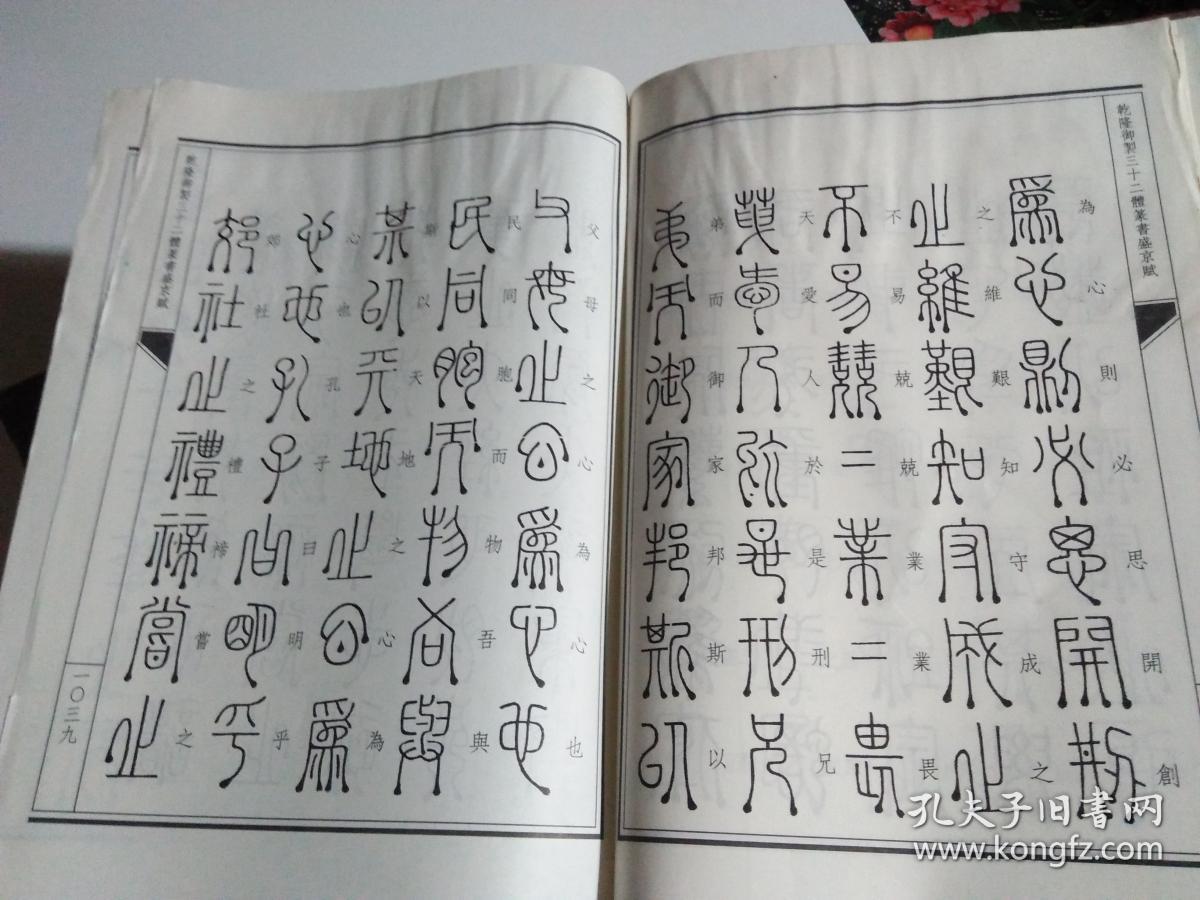 乾隆御製三十二體篆書盛京賦
為心則必思開創
之維艱知守成之
不易兢兢業業畏
天愛人於是刑兄
弟而御家邦斯以
父母之心為心也
民同胞而物吾與
以天地之心為
心也孔子曰明乎
郊社之禮禘嘗之
乾隆御製三十二體篆書盛京賦
一〇三九
孔夫子旧书网
www.kongfz.com